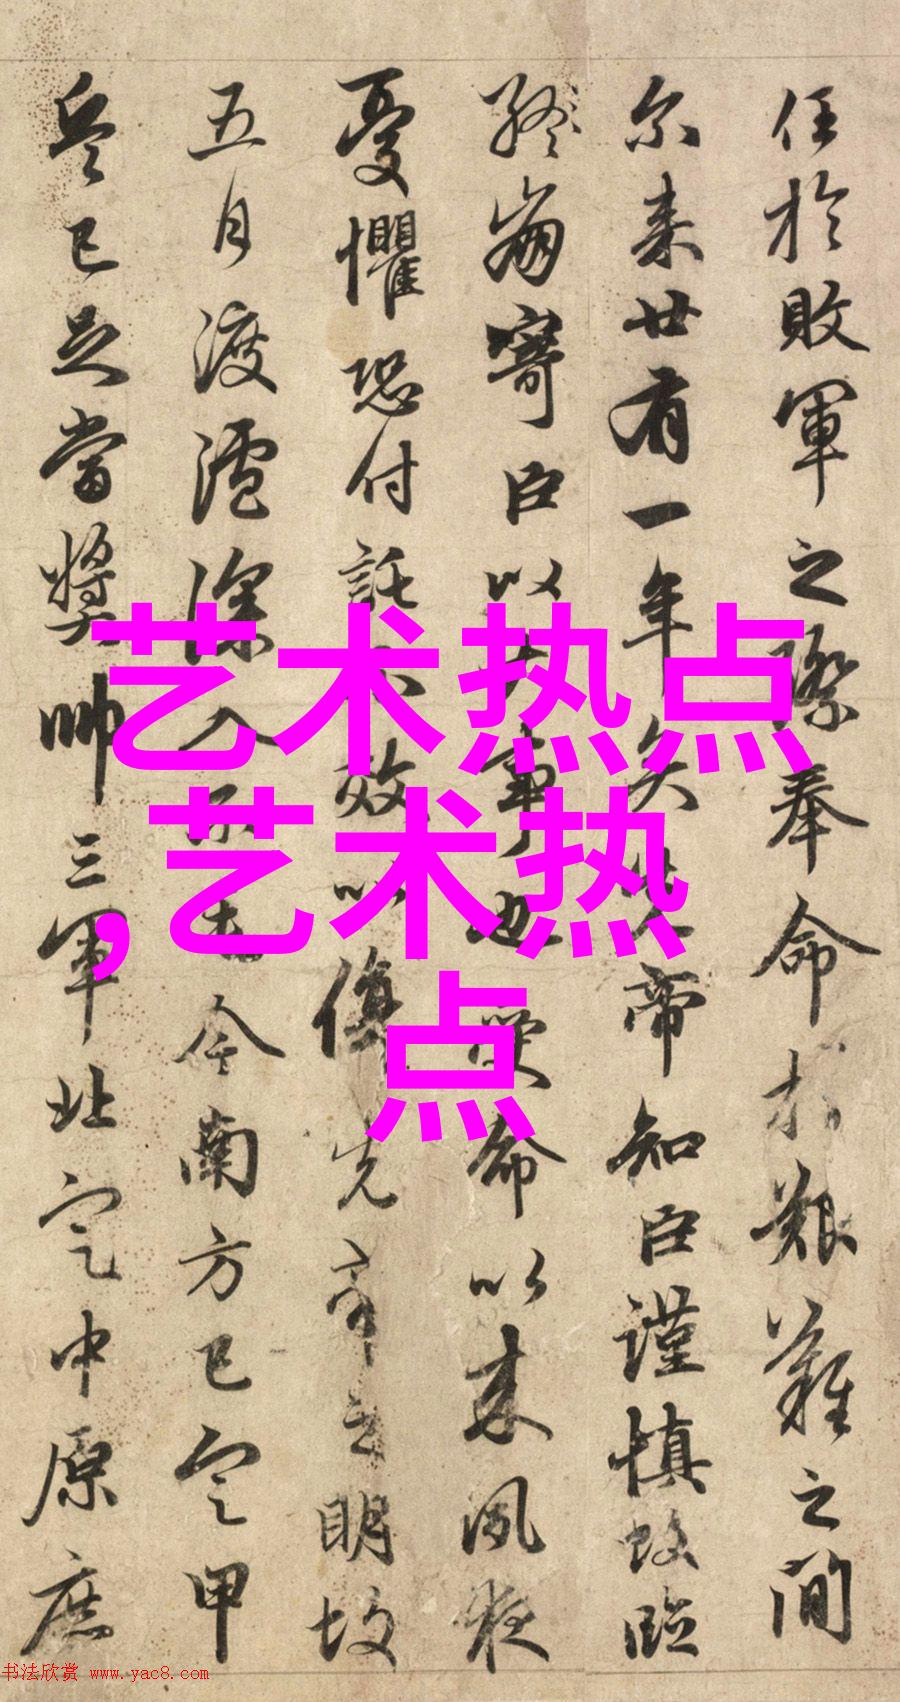 任於敗軍之際奉命於艱難之間
尔来廿有一年矣先帝知臣謹慎故臨
終崩寄臣以大事也受命以来夙夜
憂懼恐付託不效以傷先帝之明故
五月渡瀘深入不毛今南方已定甲
兵已足當獎帥三軍北定中原庶
艺术热点
,艺术热
点
书法欣赏 www.yac8.com